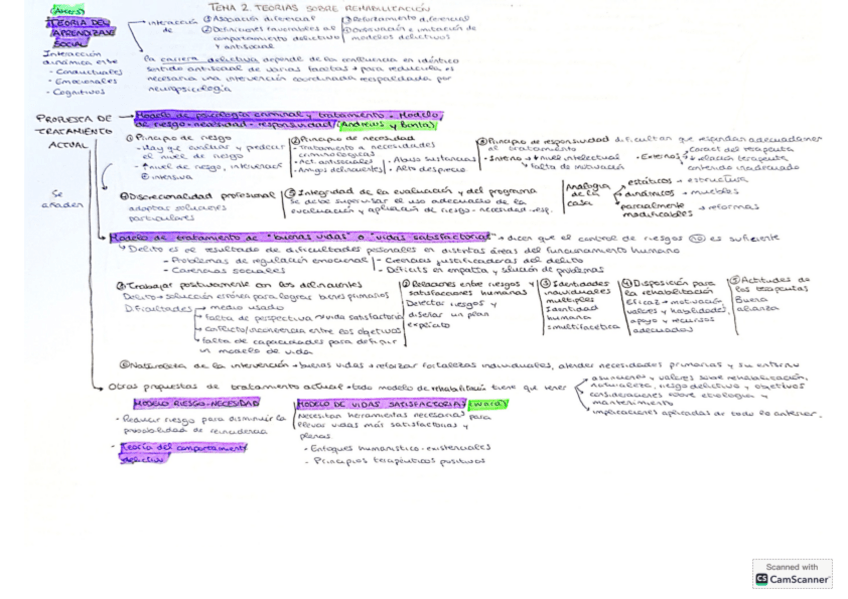 TEMA 2. TEORIAS SOBRE REHABILITACIÓN
(Akers)
TEORIA DEL
APRENDIZAJE
SOCIAL
Interacción
dinámica entre
- Conductuales
- Emocionales
- Cognitivos
interacción
de
① Asociación diferencial
② Definiciones favorables al
comportamiento delictivo
y antisocial
③ Reforzamiento diferencial
④ Observación e imitación de
modelos delictivos
la carrera delictiva depende de la confluencia en idéntico
sentido antisocial de varias facetas → para reducirla es
necesaria una intervención coordinada respaldada por
neuropsicología
PROPUESTA DE
TRATAMIENTO
ACTUAL
Modelo de psicología criminal y tratamiento - Modelo
de riesgo - necesidad - responsividad (Andrews y Bonta)
① Principio de riesgo
- Hay que evaluar y predecir
el nivel de riesgo
- ↑ nivel de riesgo, intervención
intensiva
② Principio de necesidad
- Tratamiento a necesidades
criminológicas
- Act. antisociales
- Amigos delincuentes
- Abuso sustancias
- Alto desprecio
③ Principio de responsividad dificultan que respondan adecuadamente
al tratamiento
- Interno → ↓ nivel intelectual
falta de motivación
- Externo
Caract del terapeuta
↓ relación terapeuta
contenido inadecuado
Se
añaden
④ Discrecionalidad profesional
adoptar soluciones
particulares
⑤ Integridad de la evaluación y del programa
se debe supervisar el uso adecuado de la
evaluación y aplicación de riesgo - necesidad - resp.
Analogía
de la
casa
estáticos → estructura
dinámicos → muebles
parcialmente → reformas
modificables
Modelo de tratamiento de "buenas vidas" o "vidas satisfactorias" → dicen que el control de riesgos NO es suficiente
Delito es el resultado de dificultades personales en distintas áreas del funcionamiento humano
- Problemas de regulación emocional
- Carencias sociales
- Creencias justificadoras del delito
- Déficits en empatía y solución de problemas
① Trabajar positivamente con los delincuentes
Delito → solución errónea para lograr bienes primarios
Dificultades → medio usado
falta de perspectiva → vida satisfactoria
conflicto/incoherencia entre los objetivos
falta de capacidades para definir
un modelo de vida
② Relaciones entre riesgos y
satisfacciones humanas
Detectar riesgos y
diseñar un plan
explícito
③ Identidades
individuales
múltiples
Identidad
humana
multifacética
④ Disposición para
la rehabilitación
Eficaz → motivación,
valores y habilidades,
apoyo y recursos
adecuados
⑤ Actitudes de
los terapeutas
Buena
alianza
⑥ Naturaleza de la intervención → buenas vidas → reforzar fortalezas individuales, atender necesidades primarias y su entorno
Otras propuestas de tratamiento actual → todo modelo de rehabilitación tiene que tener
asunciones y valores sobre rehabilitación,
naturaleza, riesgo delictivo y objetivos
consideraciones sobre etiología y
mantenimiento
implicaciones aplicadas de todo lo anterior.
MODELO RIESGO-NECESIDAD
- Reducir riesgo para disminuir la
probabilidad de reincidencia
- Teoría del comportamiento
delictivo
MODELO DE VIDAS SATISFACTORIAS (Ward)
Necesitan herramientas necesarias para
llevar vidas más satisfactorias y
plenas
- Enfoques humanístico-existenciales
- Principios terapéuticos positivos
Scanned with
CS CamScanner